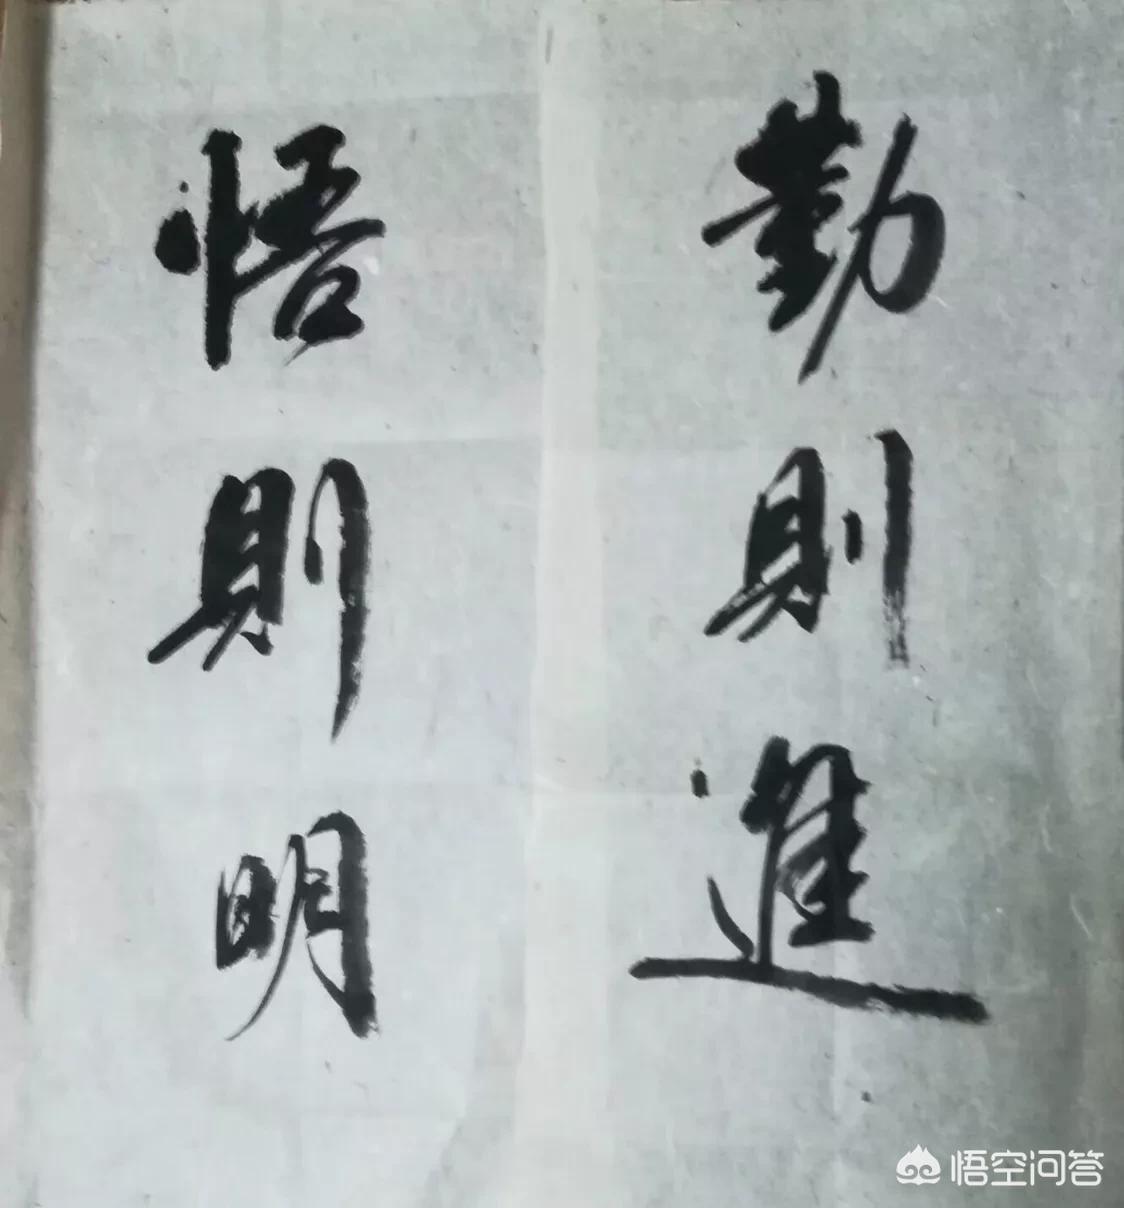 勤則進
悟則明
悟空问答